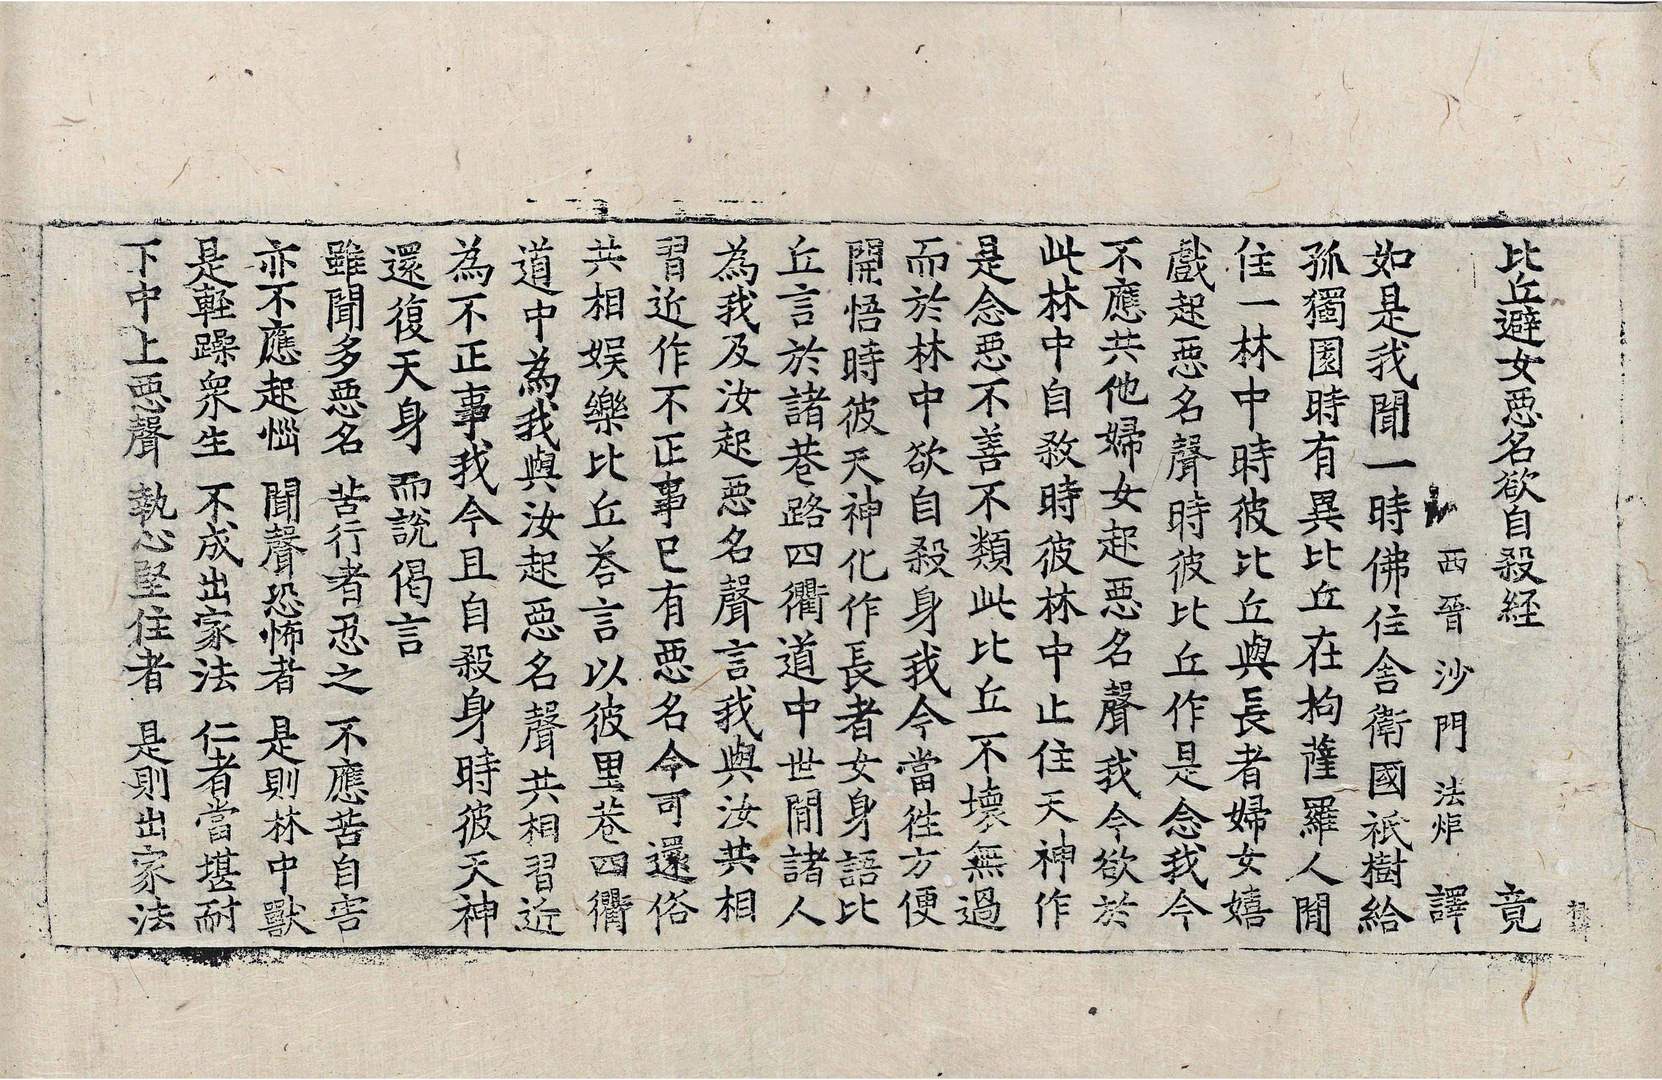 比丘避女惡名欲自殺経 竟
西晉沙門法炬 譯
如是我聞一時佛住舍衛國祇樹給
孤獨園時有異比丘在拘薩羅人間
住一林中時彼比丘與長者婦女嬉
戲起惡名聲時彼比丘作是念我今
不應共他婦女起惡名聲我今欲於
此林中自煞時彼林中止住天神作
是念惡不善不類此比丘不壞無過
而於林中欲自殺身我今當往方便
開悟時彼天神化作長者女身語比
丘言於諸巷路四衢道中世間諸人
為我及汝起惡名聲言我與汝共相
習近作不正事已有惡名今可還俗
共相娛樂比丘荅言以彼里巷四衢
道中為我與汝起惡名聲共相習近
為不正事我今且自殺身時彼天神
還復天身而說偈言
雖聞多惡名 苦行者忍之 不應苦自害
亦不應起惱 聞聲恐怖者 是則林中獸
是輕躁衆生 不成出家法 仁者當堪耐
下中上惡聲 執心堅住者 是則出家法